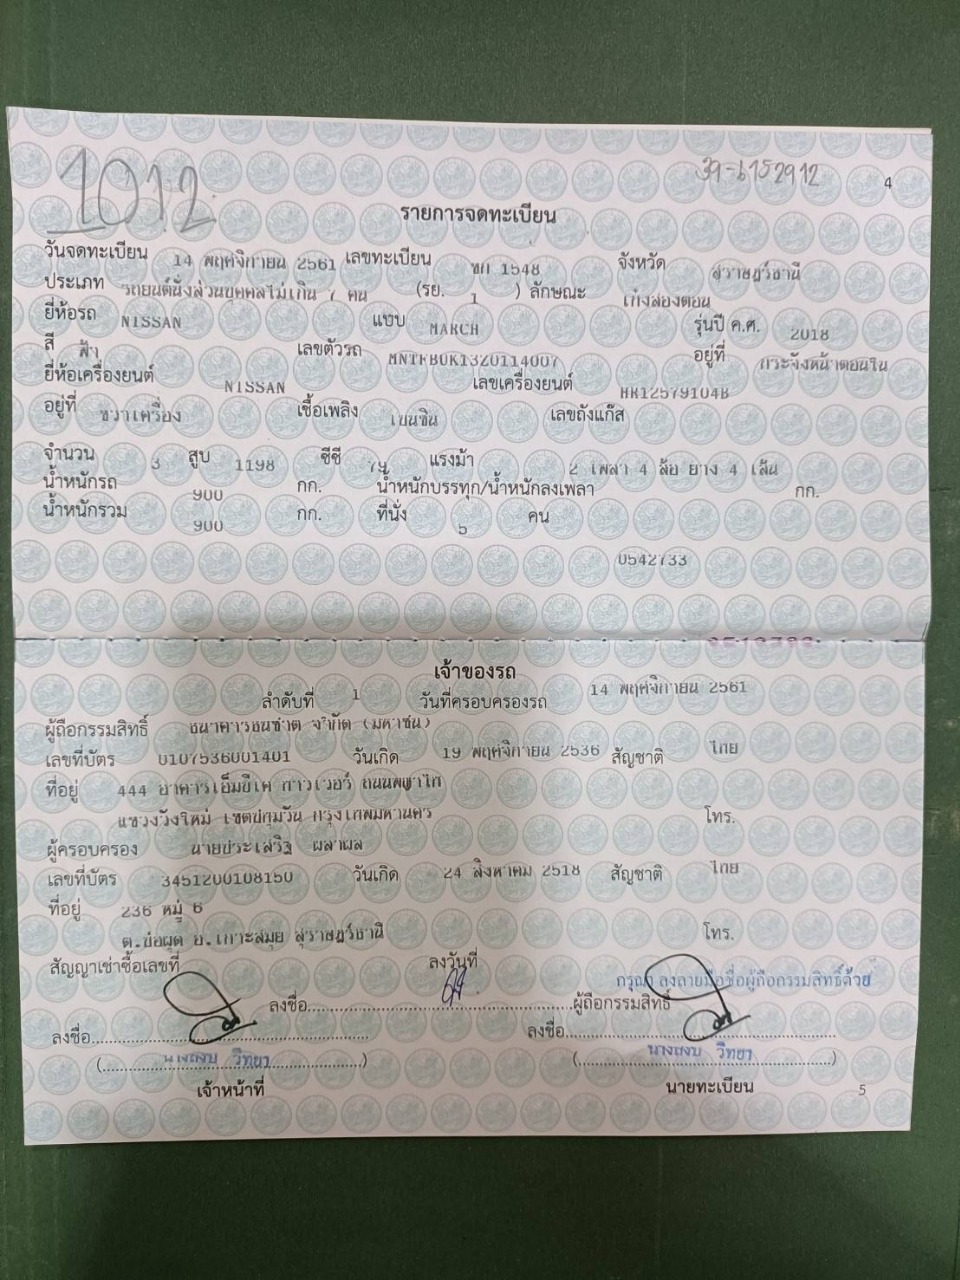 1012
39-6152912
4
รายการจดทะเบียน
วันจดทะเบียน 14 พฤศจิกายน 2561 เลขทะเบียน ขก 1548 จังหวัด สุราษฎร์ธานี
ประเภท รถยนต์นั่งส่วนบุคคลไม่เกิน 7 คน (รย. 1 ) ลักษณะ เก๋งสองตอน
ยี่ห้อรถ NISSAN แบบ MARCH รุ่นปี ค.ศ. 2018
สี ฟ้า เลขตัวรถ MNTFBUK13Z0114007 อยู่ที่ กระจังหน้าตอนใน
ยี่ห้อเครื่องยนต์ NISSAN เลขเครื่องยนต์ HR12579104B
อยู่ที่ ขวาเครื่อง เชื้อเพลิง เบนซิน เลขถังแก๊ส
จำนวน 3 สูบ 1198 ซีซี 79 แรงม้า 2 เพลา 4 ล้อ ยาง 4 เส้น
น้ำหนักรถ 900 กก. น้ำหนักบรรทุก/น้ำหนักลงเพลา กก.
น้ำหนักรวม 900 กก. ที่นั่ง 5 คน
0542733
เจ้าของรถ
ลำดับที่ 1 วันที่ครอบครองรถ 14 พฤศจิกายน 2561
ผู้ถือกรรมสิทธิ์ ธนาคารธนชาต จำกัด (มหาชน)
เลขที่บัตร 0107536001401 วันเกิด 19 พฤศจิกายน 2536 สัญชาติ ไทย
ที่อยู่ 444 อาคารเอ็มบีเค ทาวเวอร์ ถนนพญาไท
แขวงวังใหม่ เขตปทุมวัน กรุงเทพมหานคร โทร.
ผู้ครอบครอง นายประเสริฐ ผลาผล
เลขที่บัตร 3451200108150 วันเกิด 24 สิงหาคม 2518 สัญชาติ ไทย
ที่อยู่ 236 หมู่ 6
ต.บ่อผุด อ.เกาะสมุย สุราษฎร์ธานี โทร.
สัญญาเช่าซื้อเลขที่ ลงวันที่
กรุณา ลงลายมือชื่อผู้ถือกรรมสิทธิ์ด้วย
ลงชื่อ ผู้ถือกรรมสิทธิ์
ลงชื่อ ลงชื่อ
(นางสงบ วิทยา) (นางสงบ วิทยา)
เจ้าหน้าที่ นายทะเบียน
5